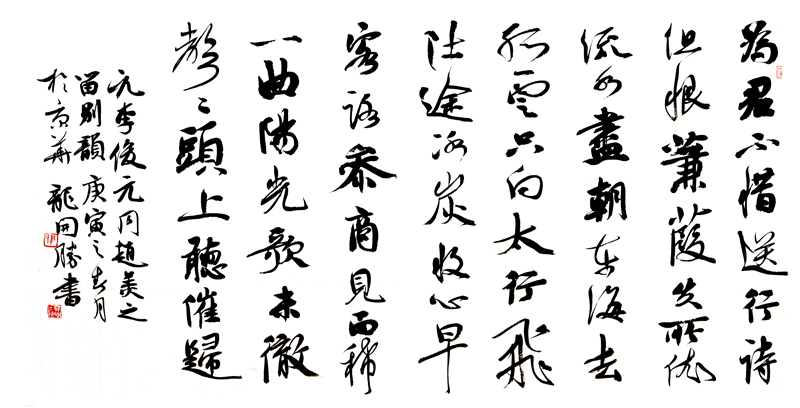 為君不惜送行詩
但恨蒹葭失所依
流水盡朝東海去
孤雲只向太行飛
仕途冰炭收心早
客路參商見面稀
一曲陽光歌未徹
聲〻頭上聽催歸
元李俊元同趙美之
留別韻 庚寅之春月
於京華 龍開勝書